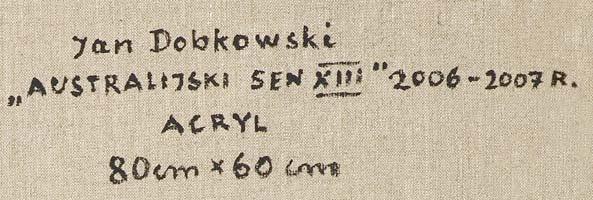 Jan Dobkowski
„AUSTRALIJSKI SEN XIII" 2006-2007 R.
ACRYL
80cm x 60 cm